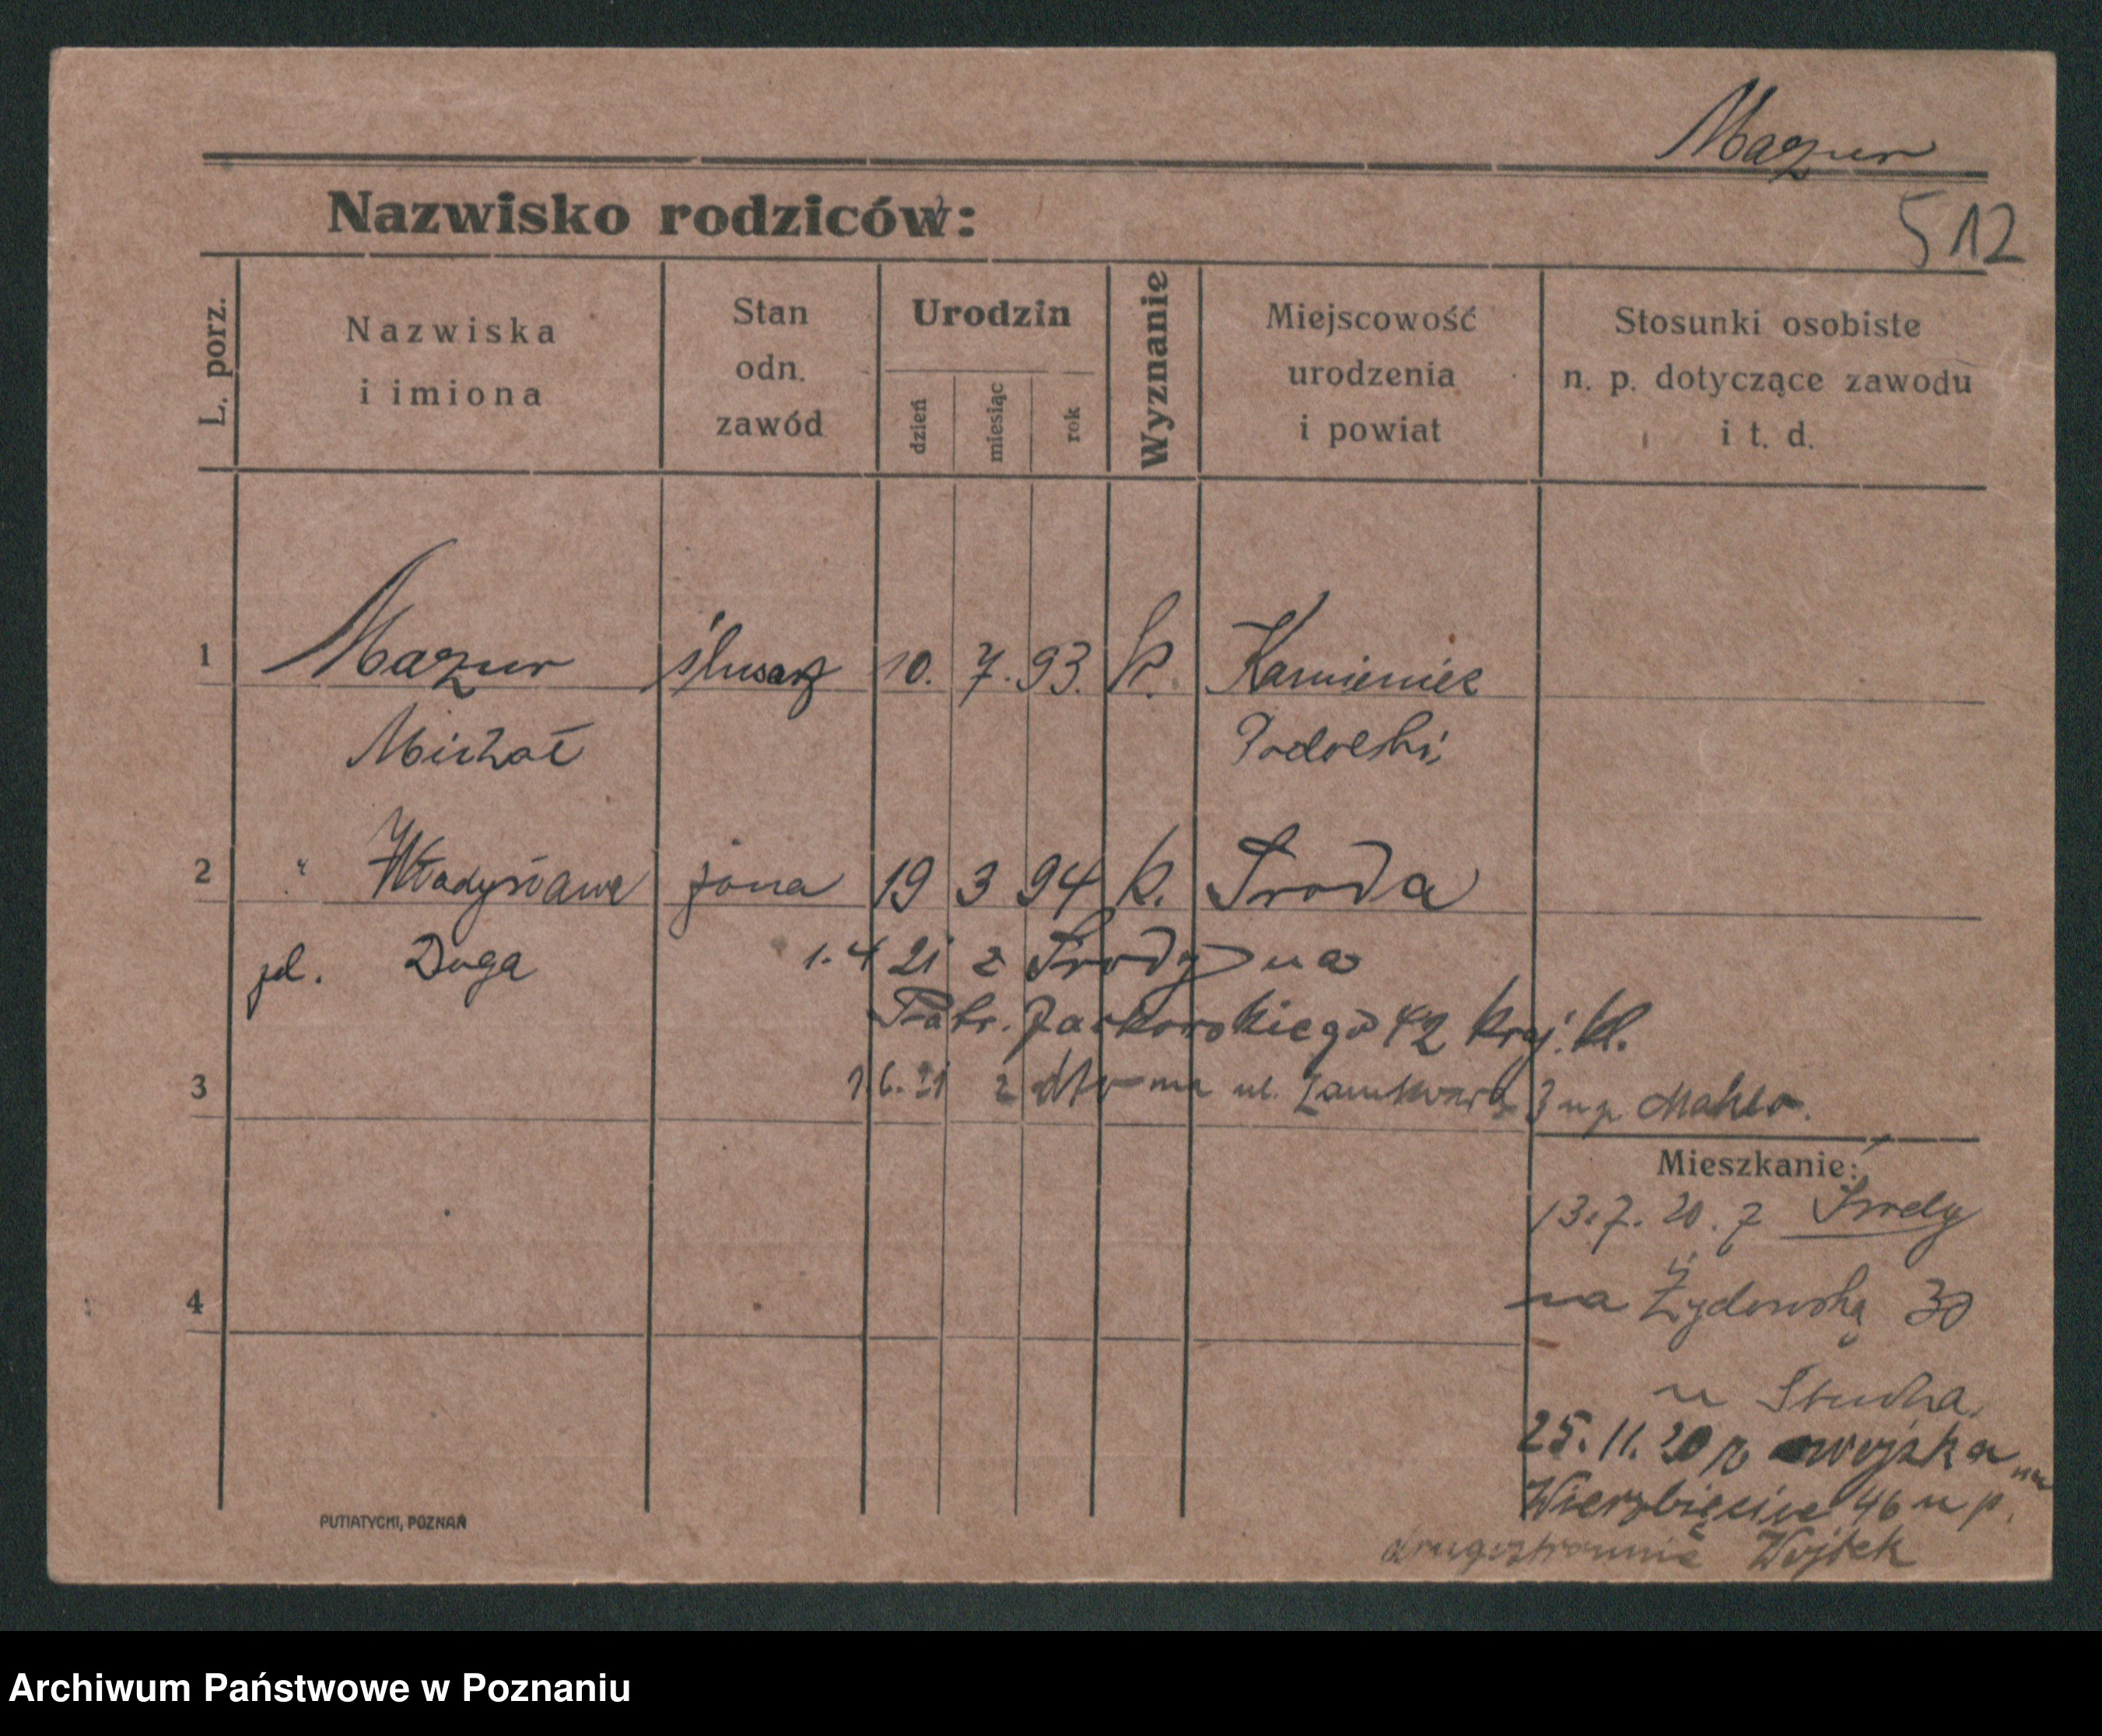 Mazur
Nazwisko rodziców:
512
L. porz.
Nazwiska
i imiona
Stan
odn.
zawód
Urodzin
dzień
miesiąc
rok
Wyznanie
Miejscowość
urodzenia
i powiat
Stosunki osobiste
n. p. dotyczące zawodu
i t. d.
1 Mazur ślusarz 10. 7. 93. k. Kamieniec
Michał Podolski
2 " Władysława żona 19 3 94 k. Środa
Duga 1.4 21 z Środy na
Jackowskiego 42 kraj. kl.
3 1 6. 21 z dto na ul. 3 u p
Mieszkanie:
13.7.20. z Środy
na Żydowską 30
4
u
25.11.20 z wojska na
Wierzbięcice 46 u p.
Wojtek
PUTIATYCKI, POZNAŃ
Archiwum Państwowe w Poznaniu